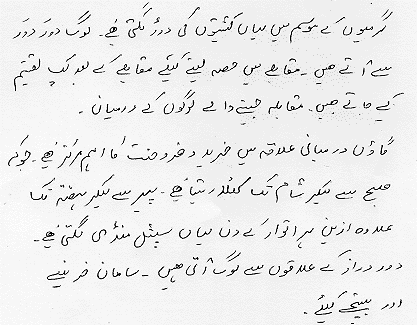 گرمیوں کے موسم میں یہاں کشتیوں کی دوڑ لگتی ہے۔ لوگ دور دور
سے آتے ہیں۔ مقابلے میں حصہ لینے کیلئے مقابلے کے بعد کپ تقسیم
کیے جاتے ہیں۔ مقابلہ جیتنے والے لوگوں کے درمیان۔
گاؤں درمیانی علاقہ میں خرید و فروخت کا اہم مرکز ہے۔ جو کہ
صبح سے لیکر شام تک کھلا رہتا ہے۔ پیر سے لیکر ہفتہ تک
علاوہ ازیں ہر اتوار کے دن یہاں سپیشل منڈی لگتی ہے۔
دور دراز کے علاقوں سے لوگ آتی ہیں۔ سامان خریدنے
اور بیچنے کیلئے۔